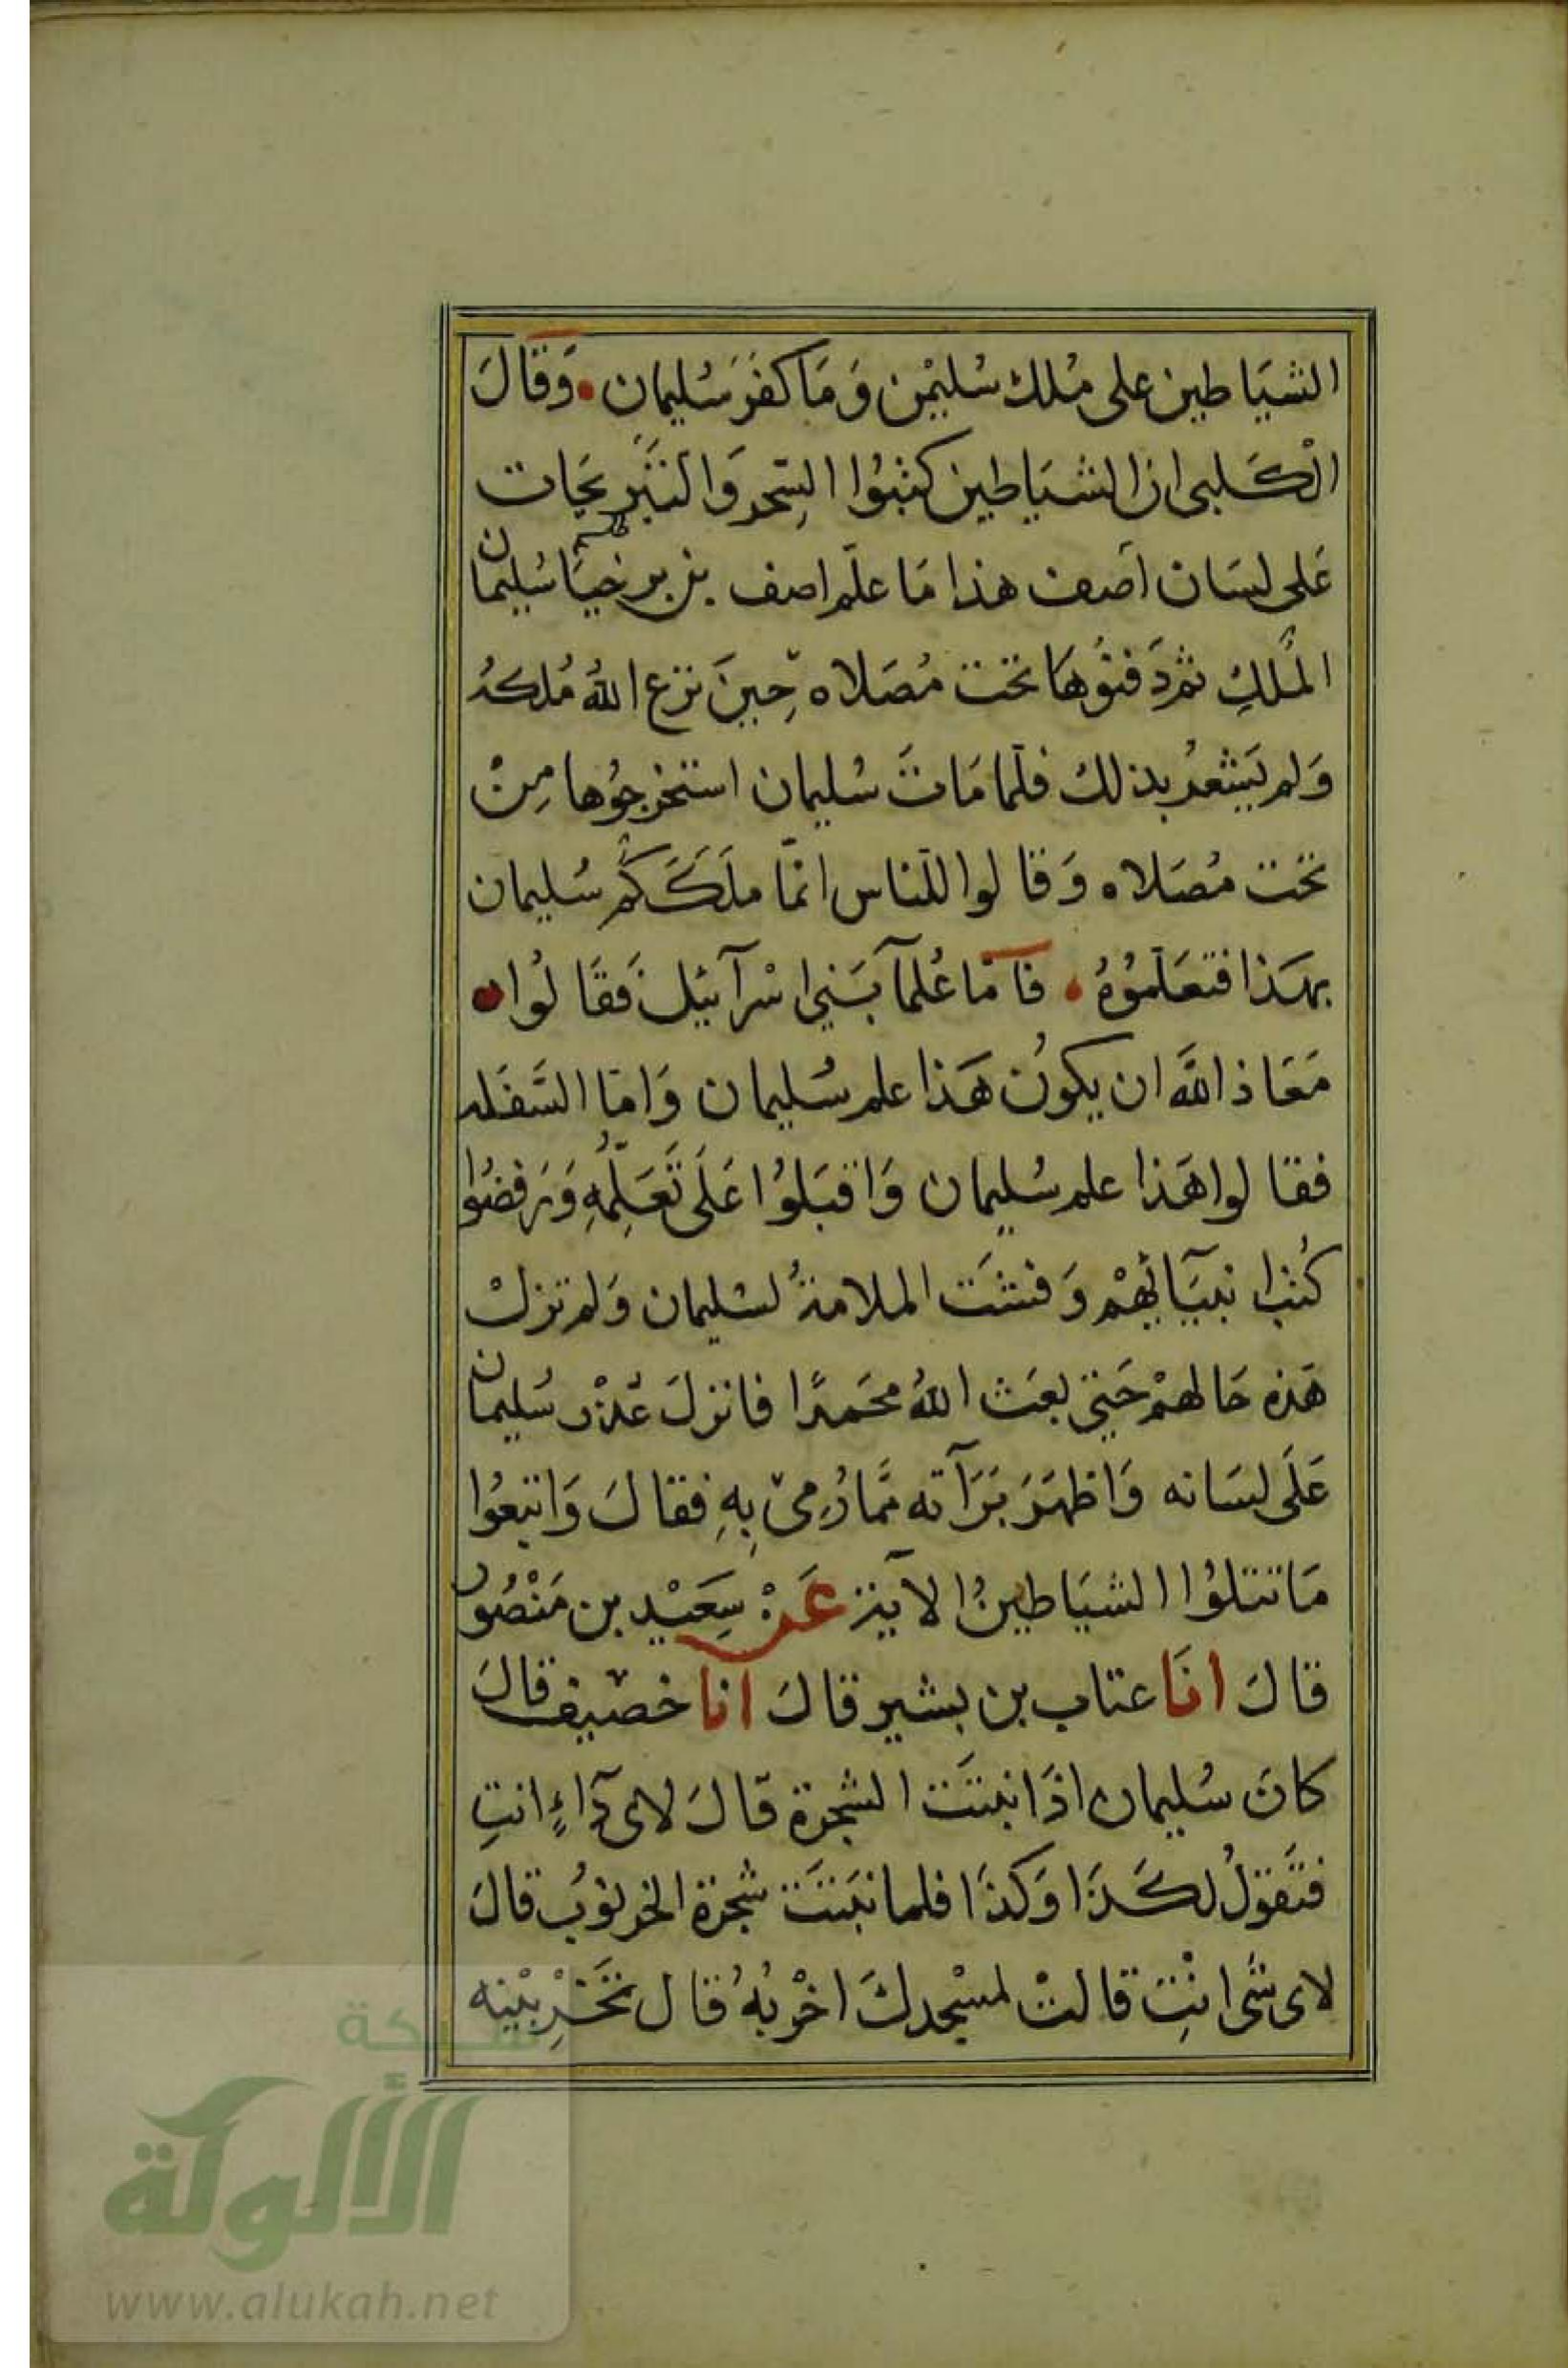 الشيَاطين على مُلك سُليمٰن وَمَا كفَرَ سُليمان • وَقالَ
الْكَلبى ان الشيَاطين كتبُوا السِّحر وَالنَيَرنجَات
عَلى لسَان آصف هذا مَا علّم اصف بن برخيَا سُليمان
المُلكِ ثم دَفنُوهَا تحت مُصَلاه حِينَ نزع اللهُ مُلكهُ
وَلم يَشعُر بذلك فلَما مَاتَ سُليمان استخرجُوها مِنْ
تحت مُصَلاه وَقالوا للنَاس انمَّا ملَكَكُم سُليمان
بهَذا فتعَلَموُهُ • فاَمّا عُلمآ بَني اسْرآئيل فَقَالوُا •
مَعَاذ اللهَ ان يكوُن هَذا علم سُليمان وَامّا السَفَله
فقالوا هَذا علم سُليمان وَاقبَلوُا عَلَى تَعَلّمِهِ وَرَفضوُا
كُتب انبيَآئهمْ وَفشَت الملامةُ لسُليمان وَلم تزلْ
هَذه حَالهمْ حَتى بعَث اللهُ محَمدًا فانزلَ عُذْر سُليمان
عَلَى لسَانه وَاظهَرَ بَرَآته ممَّا رُمىَ بِهِ فقالَ وَاتبعُوا
مَا تتلوُا الشيَاطينُ الآية عَنْ سَعَيْد بن مَنْصُور
قالَ انَا عتاب بن بشير قالَ انا خصَيف قالَ
كانَ سُليمان اذَا نبتَت الشجرة قالَ لاى دَآءٍ انتِ
فتَقولُ لكَذَا وَكذَا فلما نبَتَت شجرة الخرنوُب قالَ
لاى شَى انْتِ قالتْ لمسْجدكَ اخْربُهُ قال تخَرْبيْنه
شبكة
الألوكة
www.alukah.net